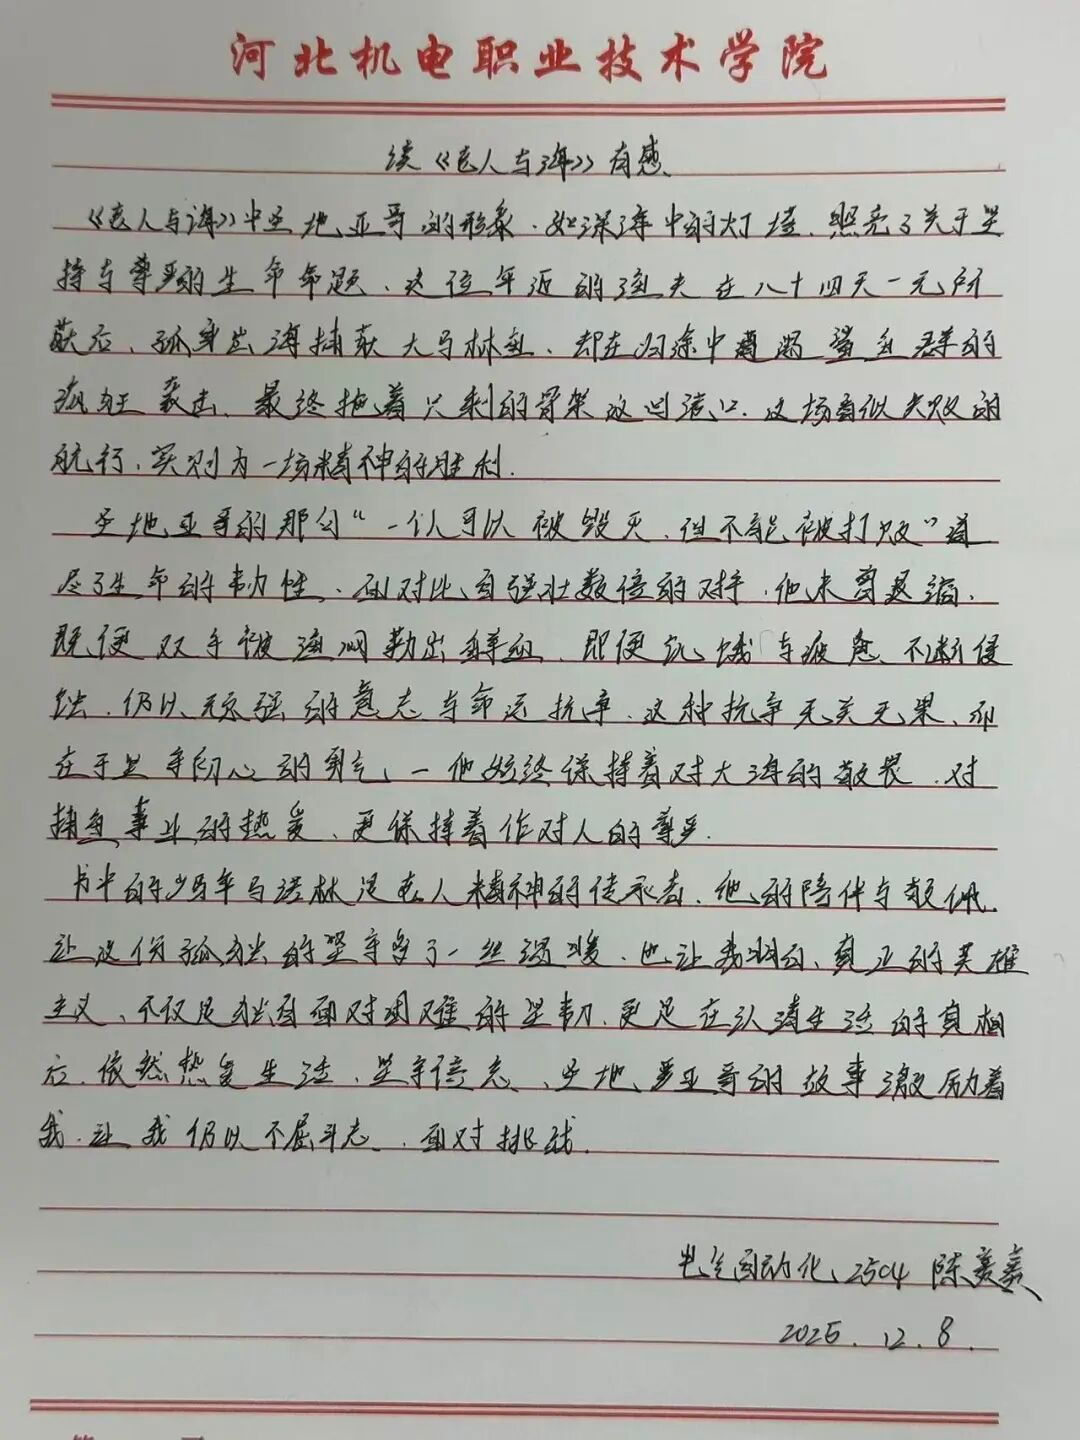 河北机电职业技术学院
读《老人与海》有感
《老人与海》中圣地亚哥的形象，如深海中的灯塔，照亮了关于坚
持与尊严的生命命题、这位年迈的渔夫在八十四天一无所
获后，孤身出海捕获大马林鱼，却在归途中遭遇鲨鱼群的
疯狂袭击，最终拖着只剩的骨架返回港口，这场看似失败的
航行，实则为一场精神的胜利.
圣地亚哥的那句“一个人可以被毁灭，但不能被打败”道
尽了生命的韧性、面对比自强壮数倍的对手，他未曾退缩，
既便双手被渔网勒出鲜血，即便饥饿与疲惫不断侵
蚀，仍以顽强的意志与命运抗争，这种抗争无关无果，而
在于坚守初心的勇气、一他始终保持着对大海的敬畏，对
捕鱼事业的热爱，更保持着作对人的尊严.
书中的少年马诺林是老人精神的传承者，他的陪伴与敬佩，
让这份孤独的坚守多了一丝温暖，也让我明白，真正的英雄
主义，不仅是独自面对困难的坚韧，更是在认清生活的真相
后，依然热爱生活，坚守信念、圣地亚哥的故事激励着
我，让我仍以不屈斗志，面对挑战.
电气自动化2504 陈
2025.12.8.